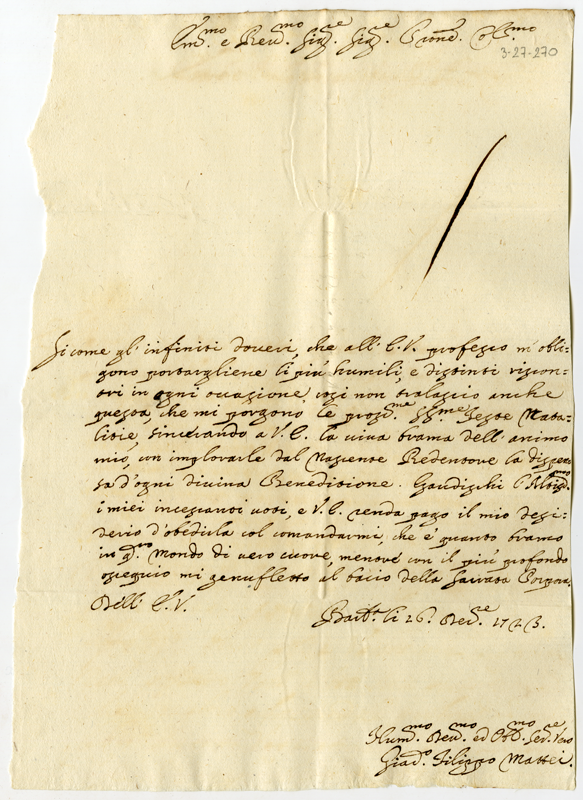 Em.mo e Rev.mo Sig.re Sig.re P̃rone. Col.mo
3-27-270
Sicome gl' infiniti doveri, che all' E.V. professo m' obli-
gono portargliene li più humili, e distinti riscon-
tri in ogni occasione, così non tralascio anche
questa, che mi porgono le pross.me SS.me Feste Nata-
litie, sincerando a V.E. la viva brama dell' animo
mio, con implorarle dal Nascente Redentore la dispen-
sa d'ogni divina Beneditione. Gaudischi l'Altiss.mo
i miei incessanti voti, e V.E. renda pago il mio desi-
derio d'obedirla col comandarmi, che è quanto bramo
in q.sto Mondo di vero cuore, mentre con il più profondo
ossequio mi genufletto al bacio della Sacrata Porpora
Dell' E.V.
li 26. 1723.
Hum.mo Dev.mo ed Obb.mo Ser.re Vero
Filippo Mattei